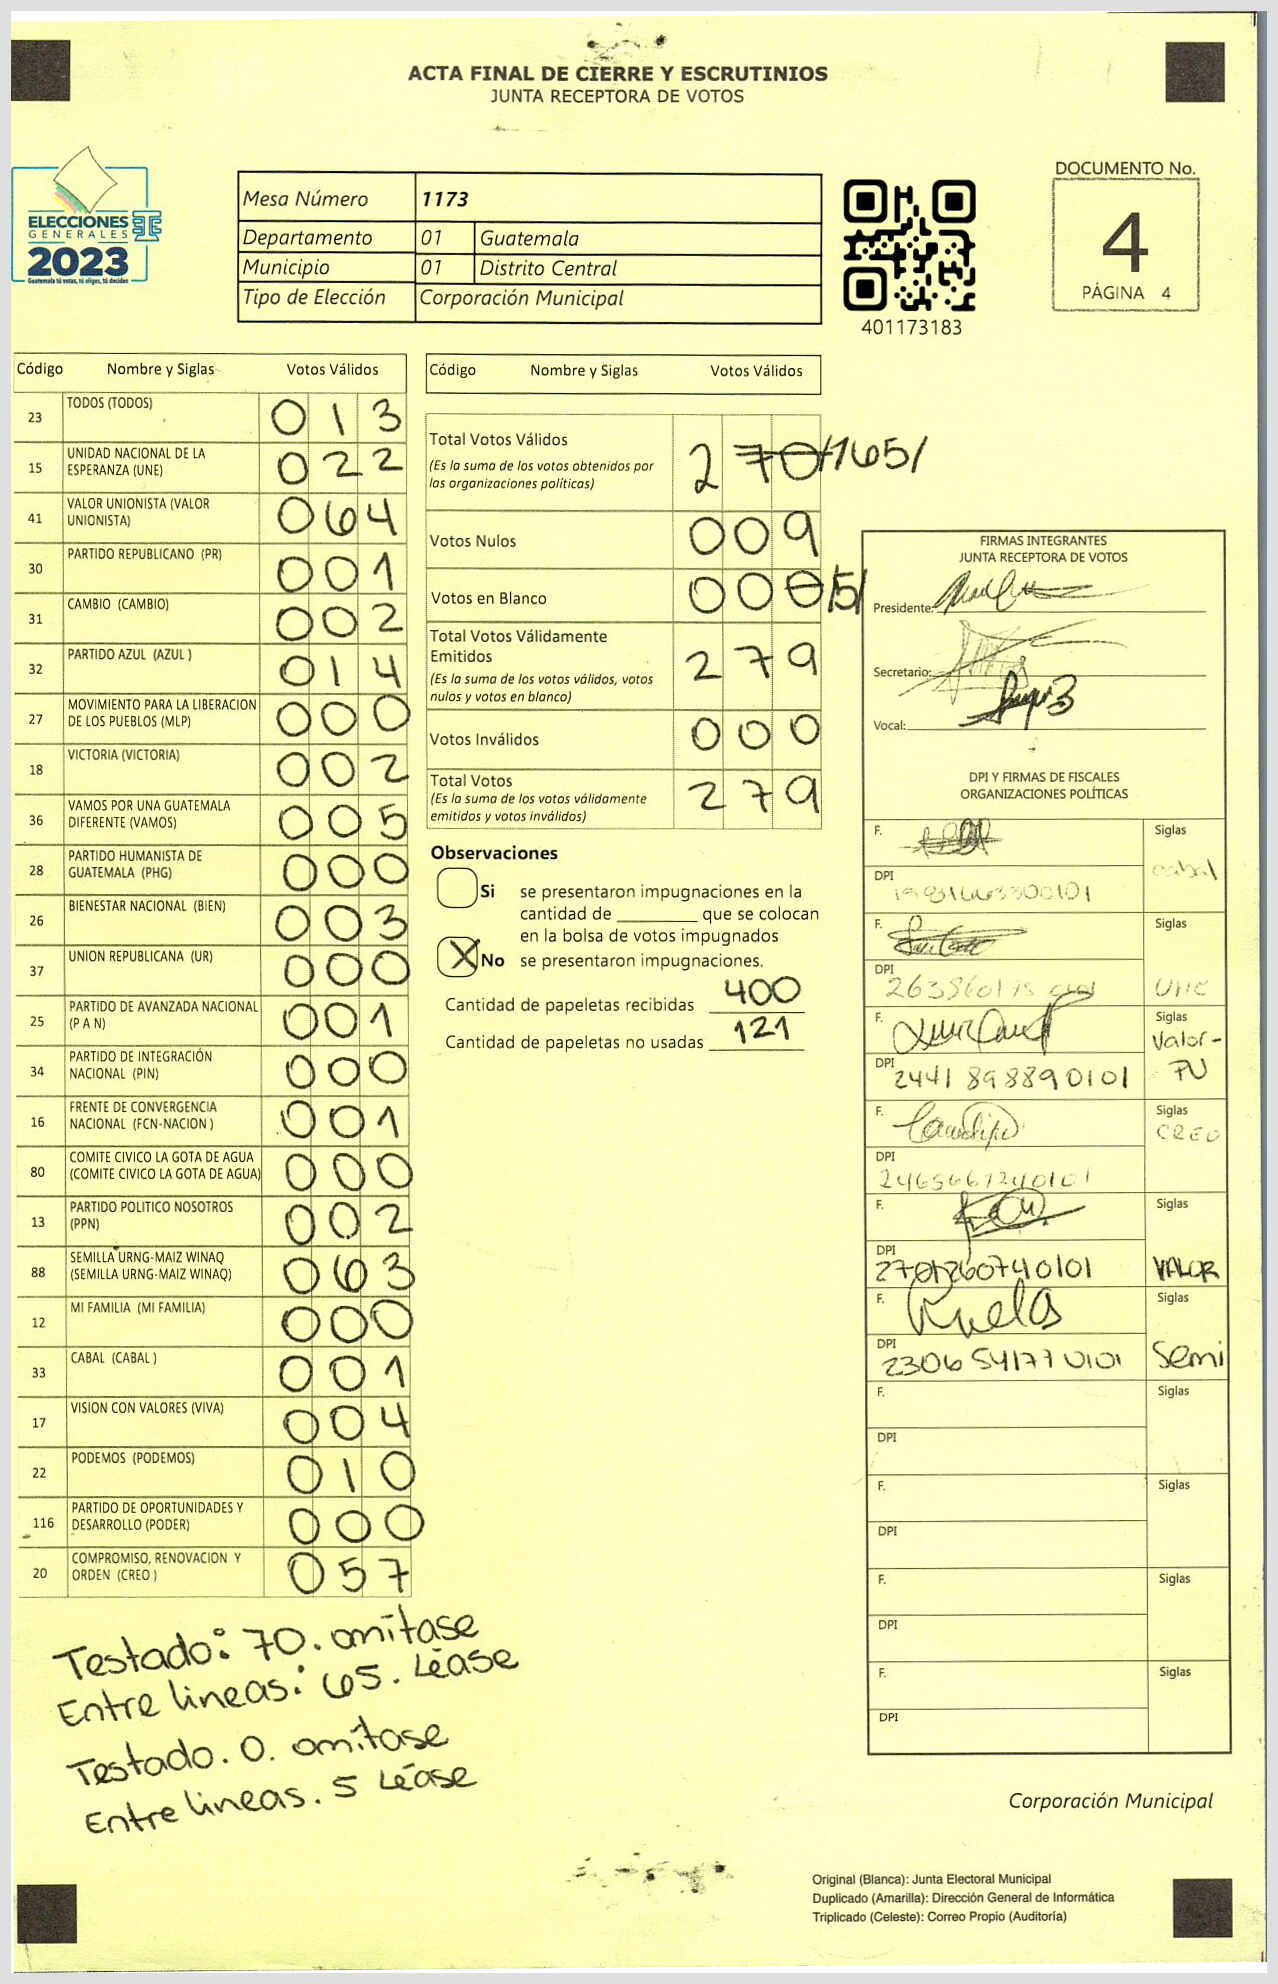 ACTA FINAL DE CIERRE Y ESCRUTINIOS
JUNTA RECEPTORA DE VOTOS
ELECCIONES
GENERALES
2023
Guatemala tú votas, tú eliges, tú decides
Mesa Número 1173
Departamento 01 Guatemala
Municipio 01 Distrito Central
Tipo de Elección Corporación Municipal
401173183
DOCUMENTO No.
4
PÁGINA 4
Código Nombre y Siglas Votos Válidos
23 TODOS (TODOS) 013
15 UNIDAD NACIONAL DE LA
ESPERANZA (UNE) 022
41 VALOR UNIONISTA (VALOR
UNIONISTA) 064
30 PARTIDO REPUBLICANO (PR) 001
31 CAMBIO (CAMBIO) 002
32 PARTIDO AZUL (AZUL ) 014
27 MOVIMIENTO PARA LA LIBERACION
DE LOS PUEBLOS (MLP) 000
18 VICTORIA (VICTORIA) 002
36 VAMOS POR UNA GUATEMALA
DIFERENTE (VAMOS) 005
28 PARTIDO HUMANISTA DE
GUATEMALA (PHG) 000
26 BIENESTAR NACIONAL (BIEN) 003
37 UNION REPUBLICANA (UR) 000
25 PARTIDO DE AVANZADA NACIONAL
(P A N) 001
34 PARTIDO DE INTEGRACIÓN
NACIONAL (PIN) 000
16 FRENTE DE CONVERGENCIA
NACIONAL (FCN-NACION ) 001
80 COMITE CIVICO LA GOTA DE AGUA
(COMITE CIVICO LA GOTA DE AGUA) 000
13 PARTIDO POLITICO NOSOTROS
(PPN) 002
88 SEMILLA URNG-MAIZ WINAQ
(SEMILLA URNG-MAIZ WINAQ) 063
12 MI FAMILIA (MI FAMILIA) 000
33 CABAL (CABAL ) 001
17 VISION CON VALORES (VIVA) 004
22 PODEMOS (PODEMOS) 010
116 PARTIDO DE OPORTUNIDADES Y
DESARROLLO (PODER) 000
20 COMPROMISO, RENOVACION Y
ORDEN (CREO ) 057
Testado: 70. omítase
Entre lineas: 65. Léase
Testado. 0. omítase
Entre lineas. 5 Léase
Código Nombre y Siglas Votos Válidos
Total Votos Válidos 270/765/
(Es la suma de los votos obtenidos por
las organizaciones políticas)
Votos Nulos 009
Votos en Blanco 000/5/
Total Votos Válidamente
Emitidos 279
(Es la suma de los votos válidos, votos
nulos y votos en blanco)
Votos Inválidos 000
Total Votos 279
(Es la suma de los votos válidamente
emitidos y votos inválidos)
Observaciones
Si se presentaron impugnaciones en la
cantidad de ________ que se colocan
en la bolsa de votos impugnados
X No se presentaron impugnaciones.
Cantidad de papeletas recibidas 400
Cantidad de papeletas no usadas 121
FIRMAS INTEGRANTES
JUNTA RECEPTORA DE VOTOS
Presidente:
Secretario:
Vocal:
DPI Y FIRMAS DE FISCALES
ORGANIZACIONES POLÍTICAS
F. Siglas
cabal
DPI
F. Siglas
UNE
DPI
F. Siglas
Valor-
PU
DPI 2441898890101
F. Siglas
CREO
DPI 2465667240101
F. Siglas
VALOR
DPI 2701260740101
F. Siglas
Semi
DPI 2306541770101
F. Siglas
DPI
F. Siglas
DPI
F. Siglas
DPI
F. Siglas
DPI
Corporación Municipal
Original (Blanca): Junta Electoral Municipal
Duplicado (Amarilla): Dirección General de Informática
Triplicado (Celeste): Correo Propio (Auditoría)